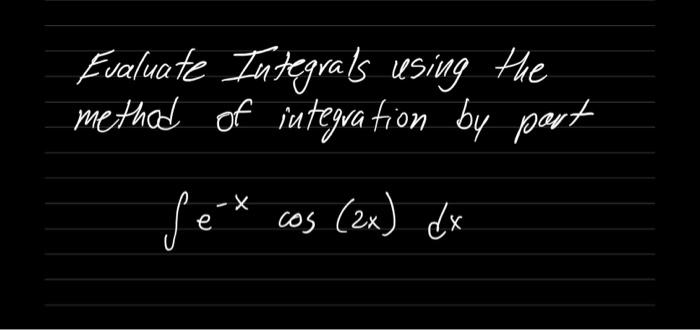 Evaluate Integrals using the
method of integration by part
∫ e^-x cos (2x) dx